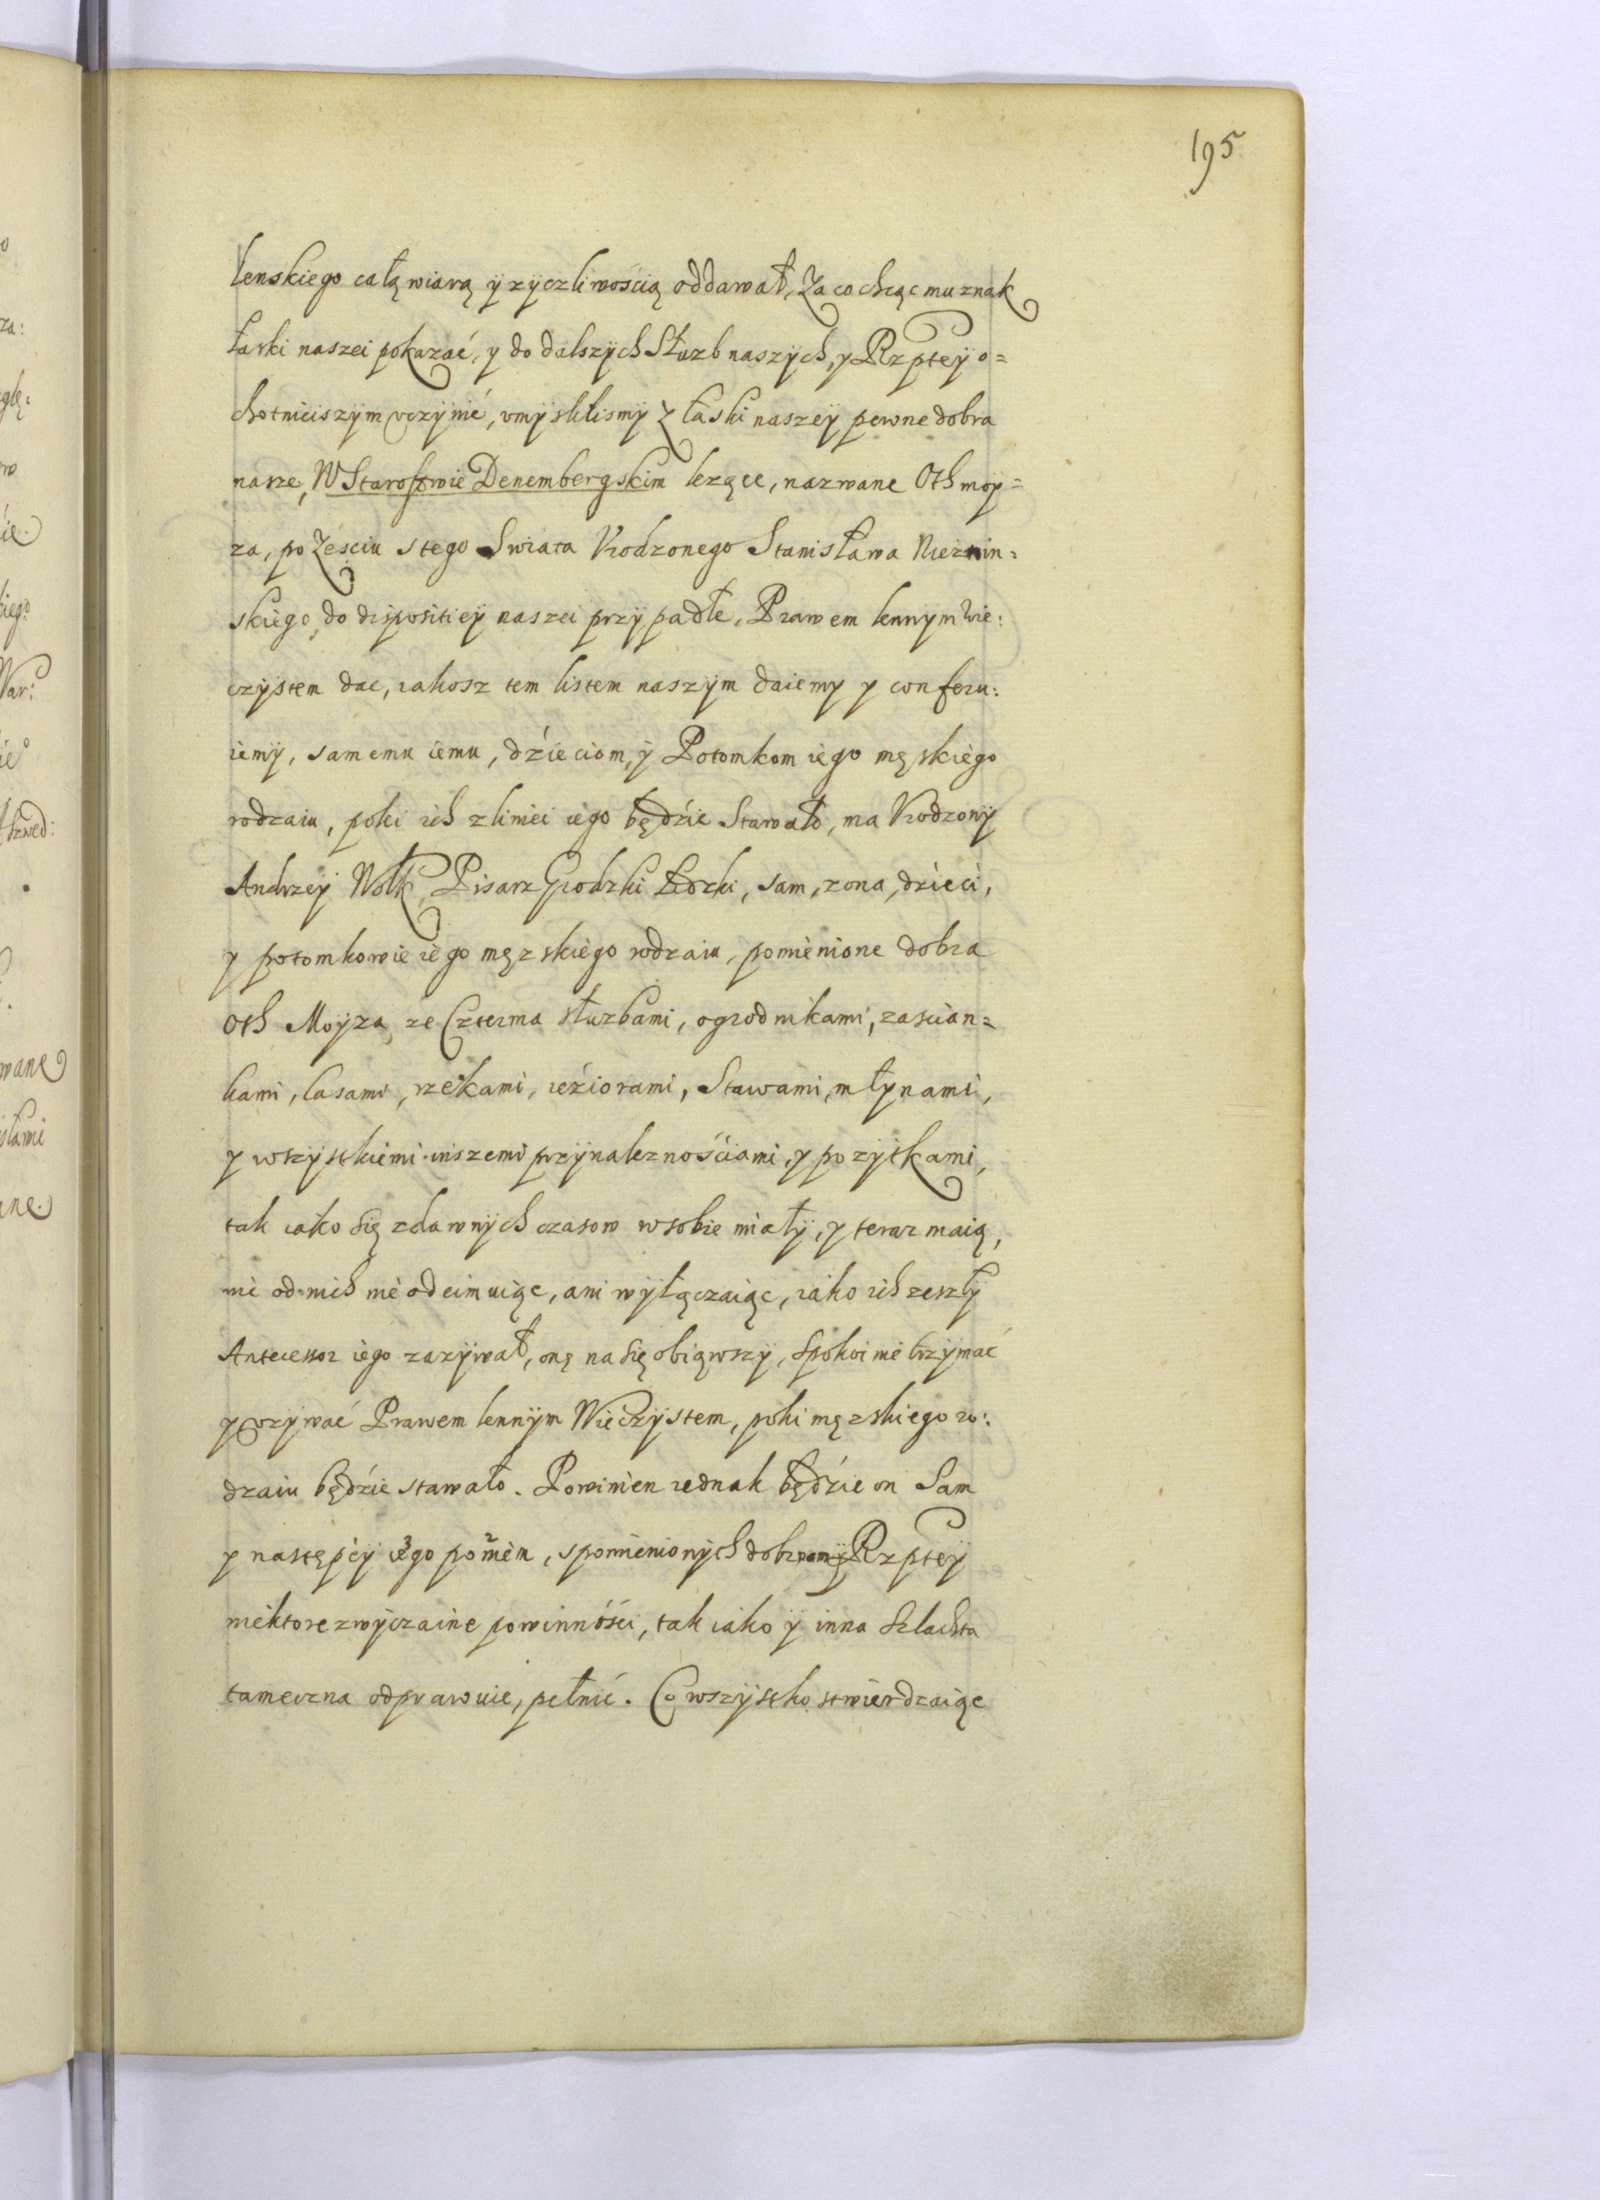 195
lenskiego całą wiarą ÿ zyczliwością oddawał, Za co chcąc mu znak
łaski naszei pokazać, y do dalszÿch Słuzb naszÿch, y Rzptеÿ o=
chotnieiszÿm vczÿnić, vmÿslilismÿ Z łaski naszeÿ pewne dobra
nasze, W Starostwie Denembergskim lezące, nazwane Oth moÿ=
za, po Zesciu stego Swiata Vrodzonego Stanisława
skiego, do dispositieÿ naszei przÿpadłe, Prawem lennÿm wie:
czÿstem dac, iakosz tem listem naszÿm daiemy y conferu:
iemÿ, samemu iemu, dźieciom, ÿ Potomkom iego męskiego
rodzaiu, poki ich z liniei iego będźie Stawało, ma Vrodzonÿ
Andrzeÿ Wolk Pisarz Grodzki Łozki, sam, zona, dzieci,
y potomkowie iego męzskiego rodzaiu, pomienione dobra
Oth Moÿza, ze Czterma słuzbami, ogrodnikami, zascian=
kami, lasami, rzekami, ieźiorami, Stawami, młynami,
y wszÿstkiemi inszemi przÿnaleznościami, y pozÿtkami,
tak iako się zdawnÿch czasow wsobie miałÿ, y teraz maią,
nic od nich nie odeimuiąc, ani wÿłączaiąc, iako ich zeszłÿ
Antecessor iego zazÿwał, onę na się obiąwszÿ, spokoinie trzÿmać
y vzÿwać Prawem lennÿm Wieczÿstem, poki męzskiego ro:
dzaiu będźie stawało. Powinien iednak będźie on Sam
y następcÿ iego po nièm, spomienionÿch dobr nam ÿ Rzpteÿ
niektore zwÿczaine powinności, tak iako ÿ inna szlachta
tameczna odprawuie, pełnić. Co wszÿstko stwierdzaiąc